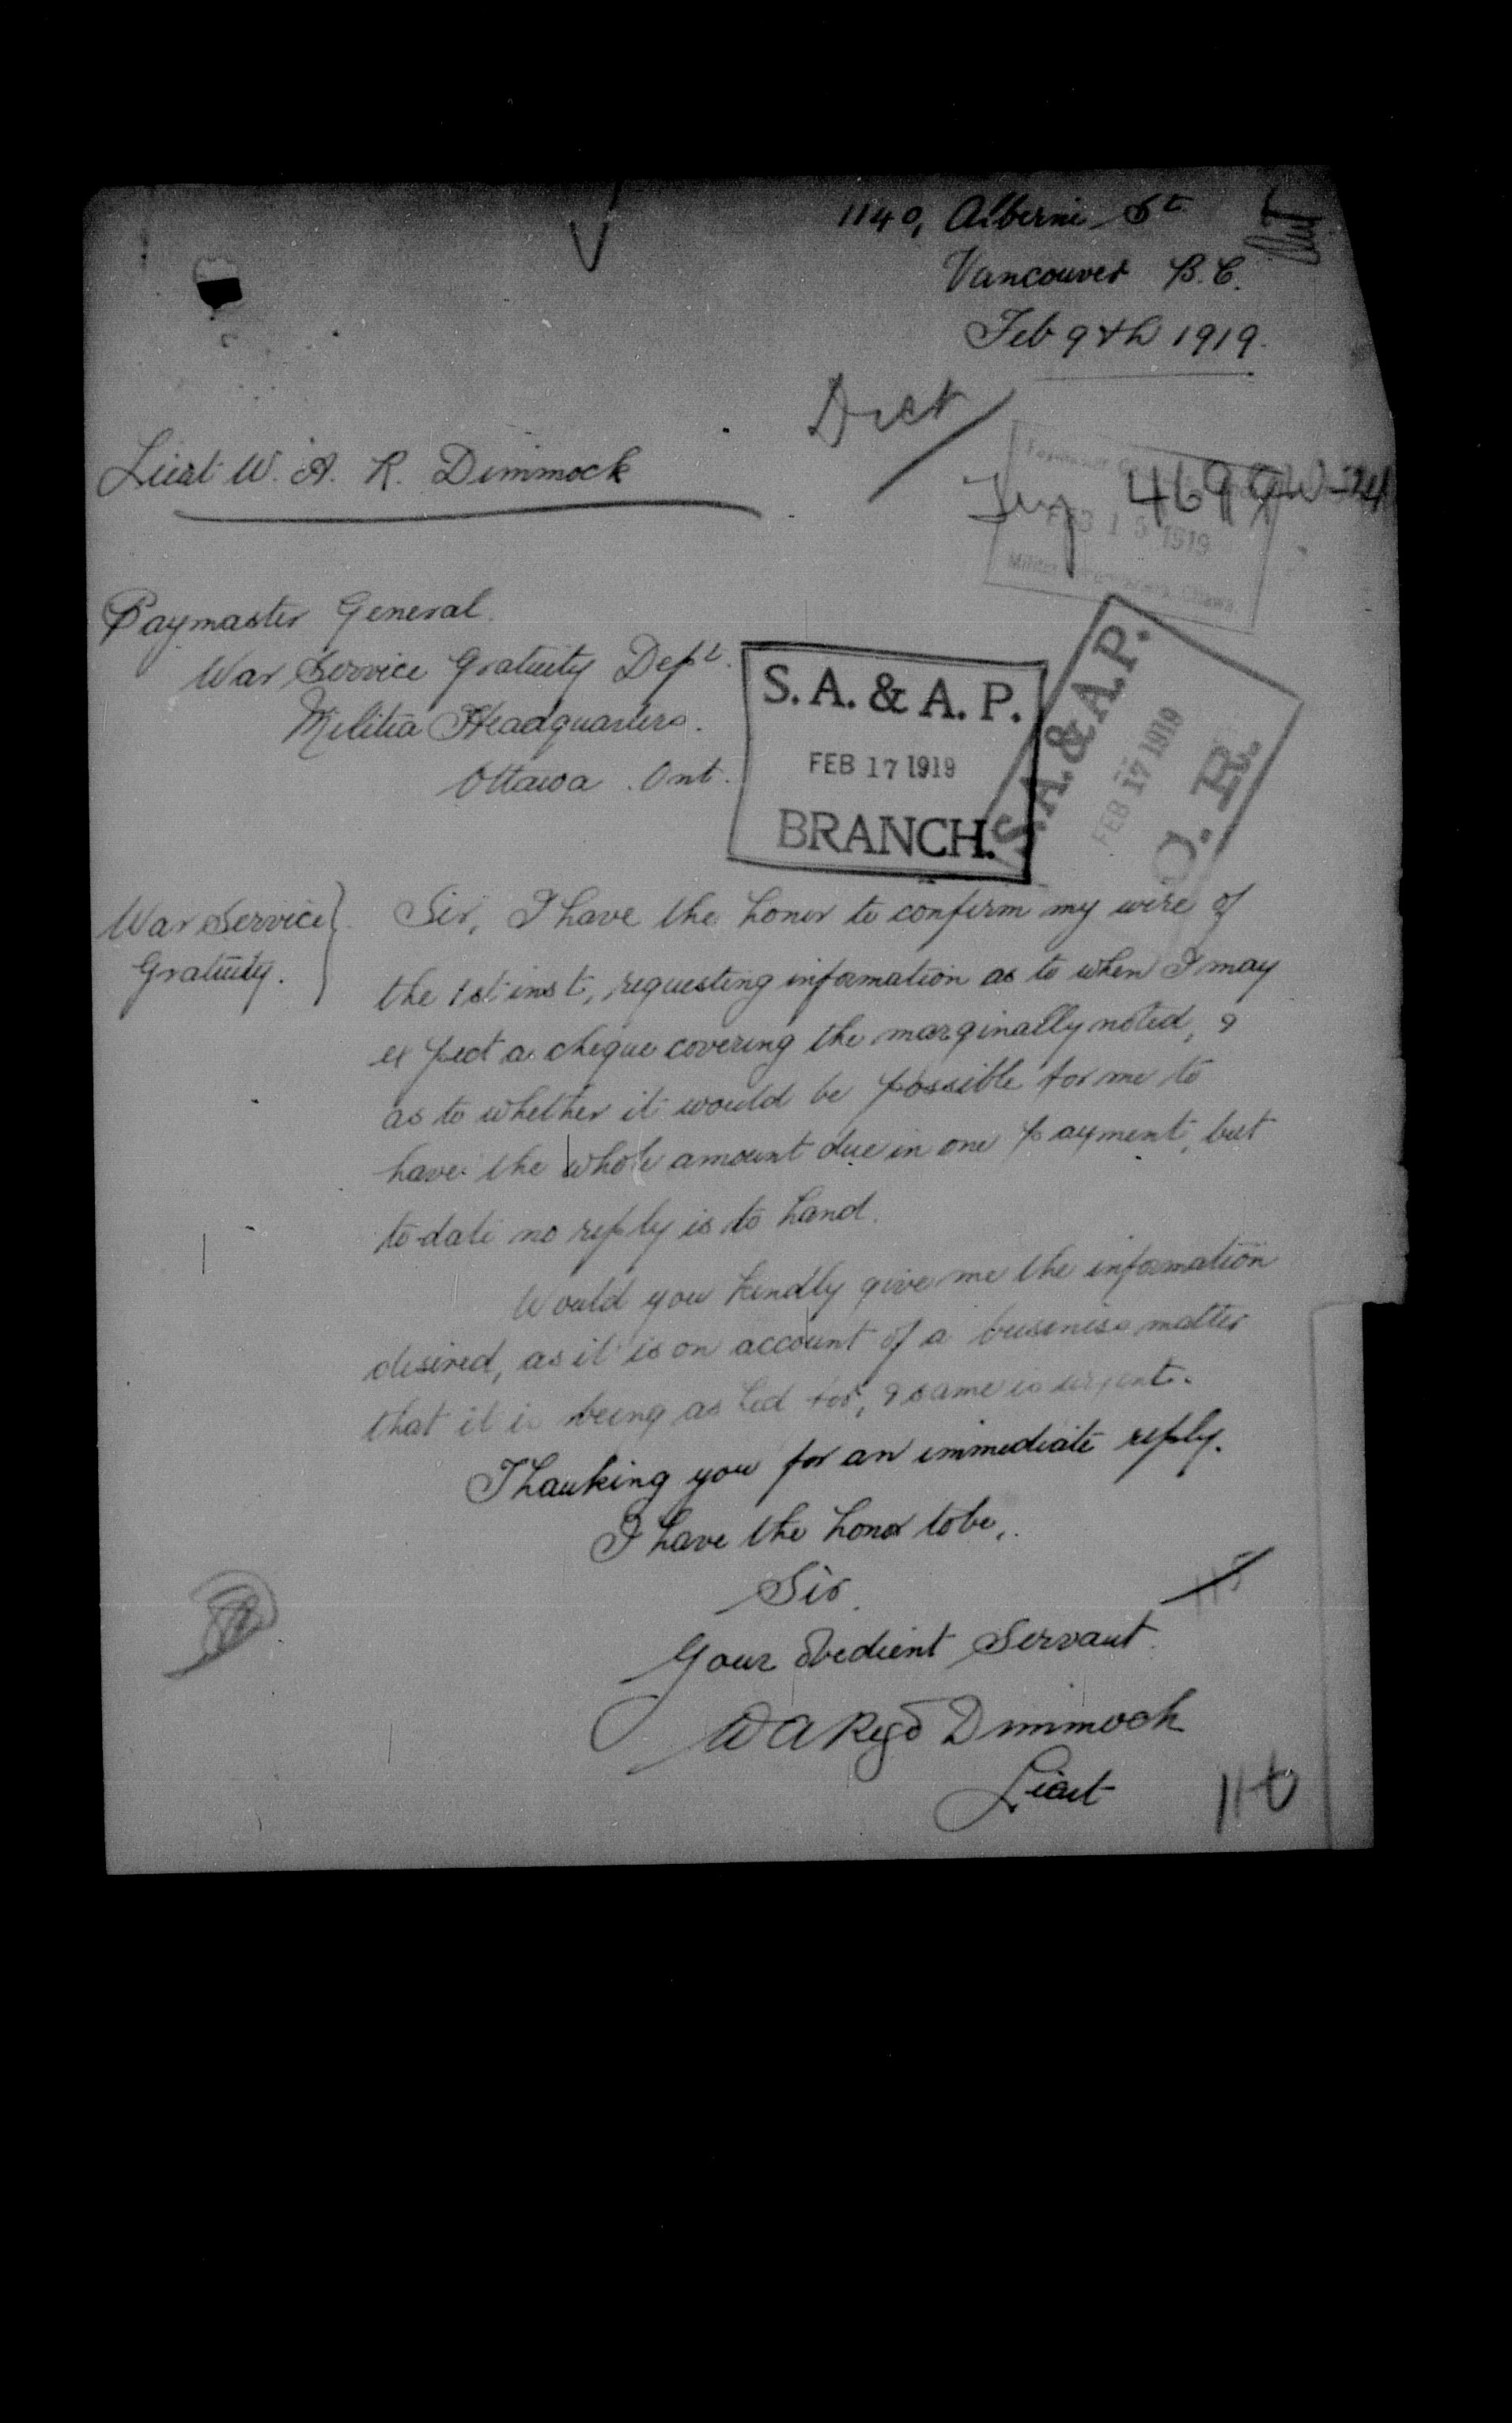 1140, Alberni St
Vancouver B.C.
Feb 9th 1919.
Dict
Lieut W. A. R. Dimmock
4699W-24
FEB 15 1919
Paymaster General.
War Service Gratuity Dept.
Militia Headquarters.
Ottawa. Ont.
S. A. & A. P.
FEB 17 1919
BRANCH.
S.A. & A.P.
FEB 17 1919
O. R.
War Service
Gratuity.
Sir, I have the honor to confirm my wire of
the 1st inst, requesting infomation as to when I may
expect a cheque covering the marginally noted, &
as to whether it would be possible for me to
have the whole amount due in one payment, but
to-date no reply is to hand.
Would you kindly give me the infomation
desired, as it is on account of a business matter
that it is being asked for, & same is urgent.
Thanking you for an immediate reply.
I have the honor to be,
Sir.
Your Obedient Servant.
W A Regd Dimmock
Lieut
115